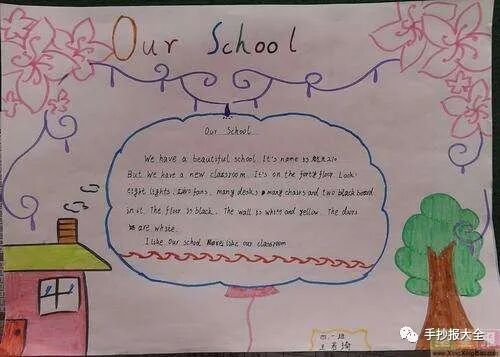 Our School
Our School
We have a beautiful school. It's name is
But we have a new classroom. It's on the forty floor. Look
eight lights. fans, many desks many chairs and two black board
in it. The floor is black. The wall is white and yellow. The doors
are white.
I like Our school. like our classroom
四一班
王 瑜
手抄报大全